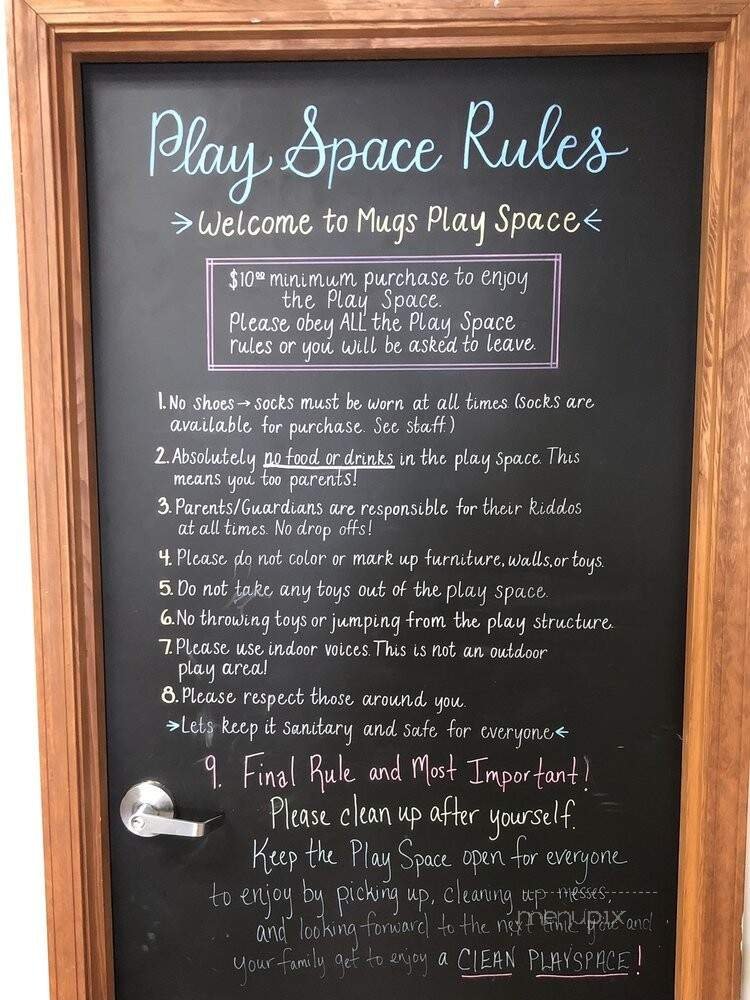 Play Space Rules
→Welcome to Mugs Play Space←
$10⁰⁰ minimum purchase to enjoy
the Play Space.
Please obey ALL the Play Space
rules or you will be asked to leave.
1. No shoes → socks must be worn at all times (socks are
available for purchase. See staff.)
2. Absolutely no food or drinks in the play space. This
means you too parents!
3. Parents/Guardians are responsible for their kiddos
at all times. No drop offs!
4. Please do not color or mark up furniture, walls, or toys.
5. Do not take any toys out of the play space.
6. No throwing toys or jumping from the play structure.
7. Please use indoor voices. This is not an outdoor
play area!
8. Please respect those around you.
→Lets keep it sanitary and safe for everyone←
9. Final Rule and Most Important!
Please clean up after yourself.
Keep the Play Space open for everyone
to enjoy by picking up, cleaning up messes,
and looking forward to the next time you and
menupix
your family get to enjoy a CLEAN PLAYSPACE!